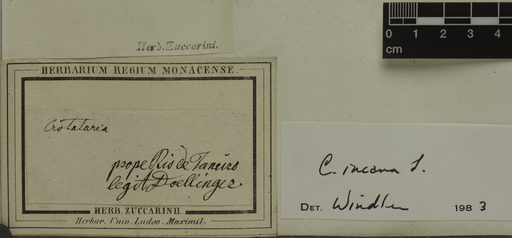 Herb. Zuccarini.
0 1 2 3 4
cm
HERBARIUM REGIUM MONACENSE.
Crotalaria
prope Rio de Janeiro
legit Doellinger.
HERB. ZUCCARINII.
Herbar. Univ. Ludov. Maximil.
C. incana L.
DET. Windler 1983